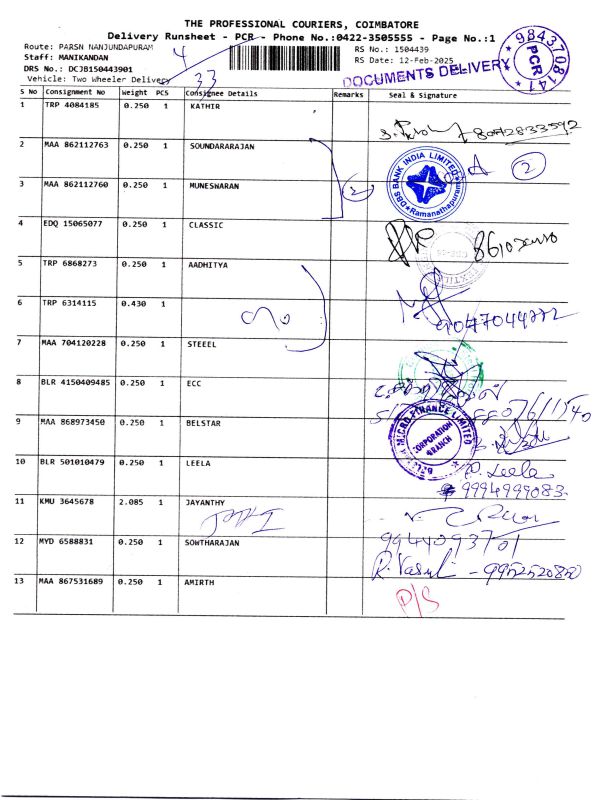 THE PROFESSIONAL COURIERS, COIMBATORE
Delivery Runsheet - PCR - Phone No.:0422-3505555 - Page No.:1
Route: PARSN NANJUNDAPURAM
Staff: MANIKANDAN
DRS No.: DCJB150443901
Vehicle: Two Wheeler Delivery
4
33
RS No.: 1504439
RS Date: 12-Feb-2025
DOCUMENTS DELIVERY
9843708141
PCR
S No Consignment No Weight PCS Consignee Details Remarks Seal & Signature
1 TRP 4084185 0.250 1 KATHIR
8072833592
2 MAA 862112763 0.250 1 SOUNDARARAJAN
DBS BANK INDIA LIMITED
Ramanathapuram
A 2
3 MAA 862112760 0.250 1 MUNESNARAN
2
4 EDQ 15065077 0.250 1 CLASSIC
5 TRP 6868273 0.250 1 AADHITYA
6 TRP 6314115 0.430 1
9047044772
7 MAA 704120228 0.250 1 STEEEL
8 BLR 4150409485 0.250 1 ECC
9 MAA 868973450 0.250 1 BELSTAR
MICRO FINANCE LIMITED
CORPORATION BRANCH
10 BLR 501010479 0.250 1 LEELA
P. Leela
9994999083
11 KMU 3645678 2.085 1 JAYANTHY
12 MYD 6588831 0.250 1 SOWTHARAJAN
9944093701
R. Vasuki - 9952520850
13 MAA 867531689 0.250 1 AMIRTH
P/S